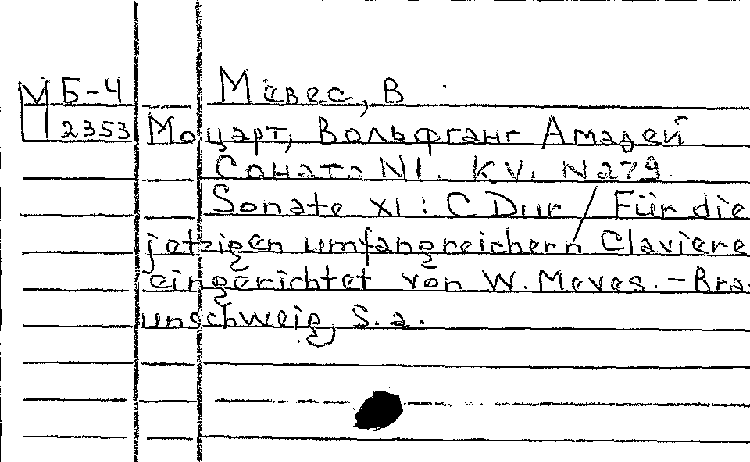 М Б-4 Мевес, В
2353 Моцарт, Вольфганг Амадей
Соната N1. KV. N279
Sonate XI: C Dur / Für die
jetzigen umfangreichern Claviere
eingerichtet von W. Meves. - Bra-
unschweig, S. a.